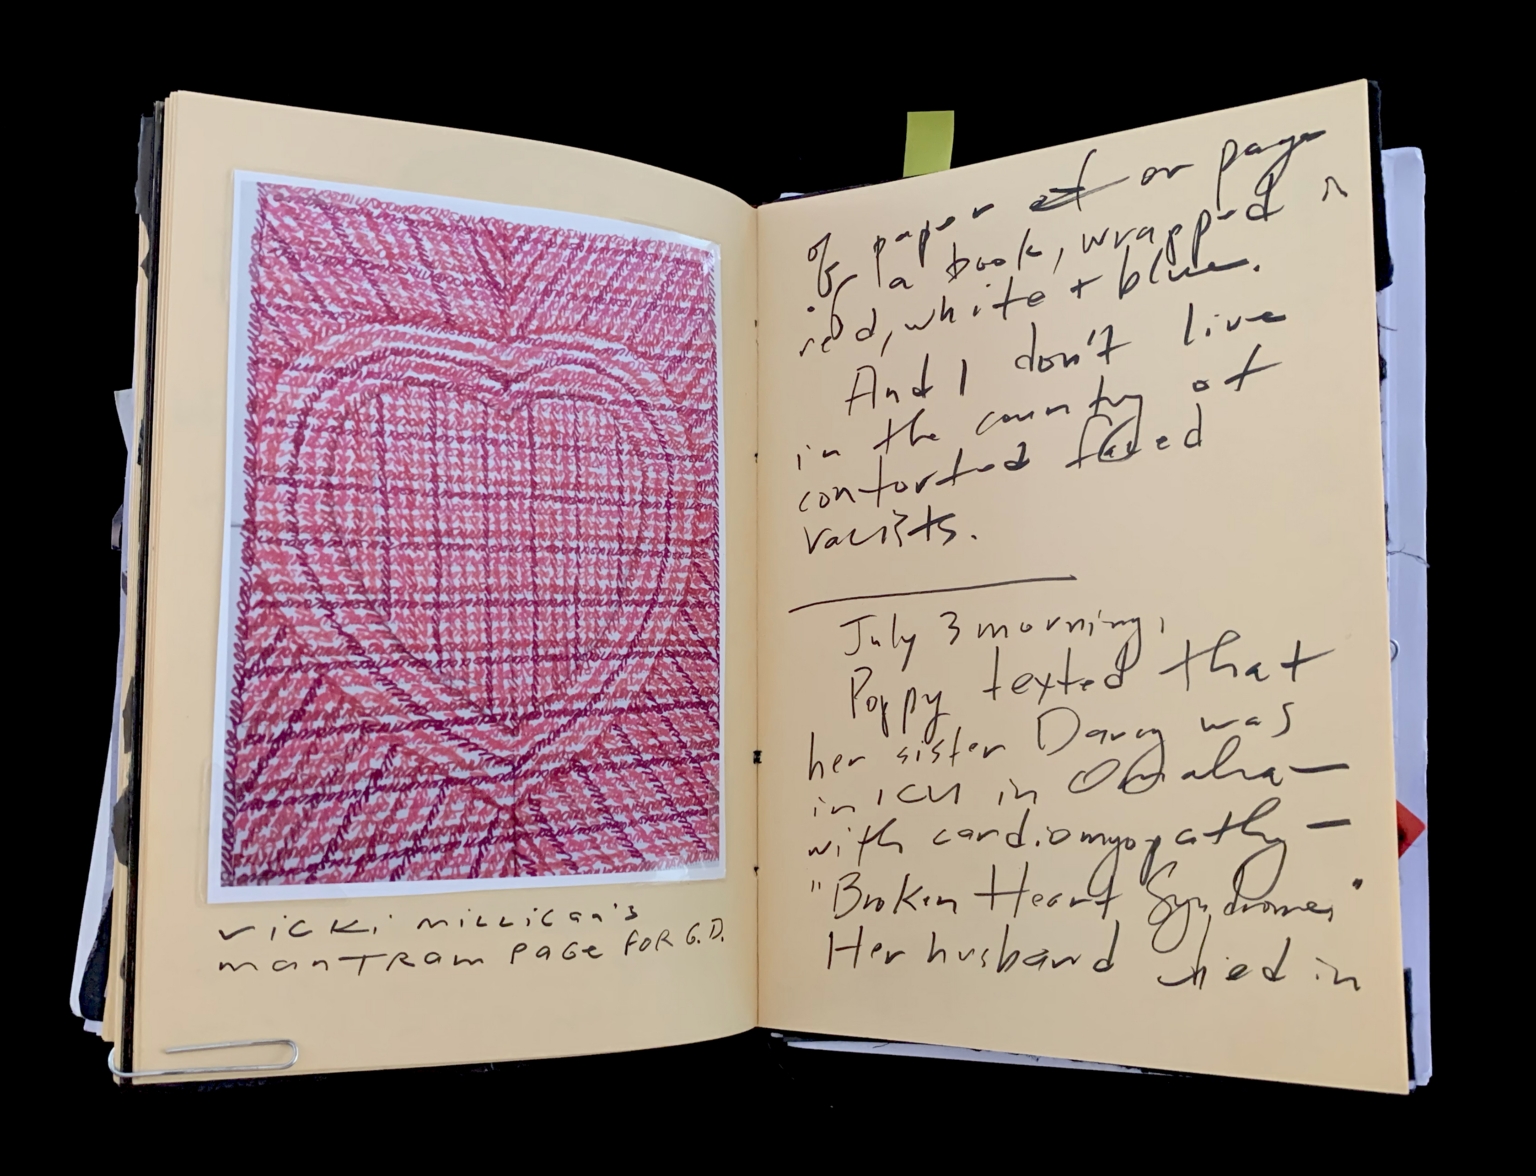 Vicki Millican's
mantram page for G.D.
of paper or page
of a book, wrapped in
red, white + blue.
And I don't live
in the country of
contorted faced
racists.
July 3 morning,
Poppy texted that
her sister Darcy was
in ICU in Omaha—
with cardiomyopathy—
"Broken Heart Syndrome,"
Her husband died in